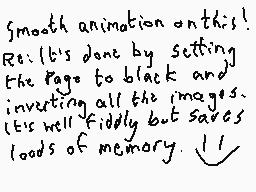 Smooth animation on this!
Re: It's done by setting
the page to black and
inverting all the images.
It's well fiddly but saves
loads of memory.